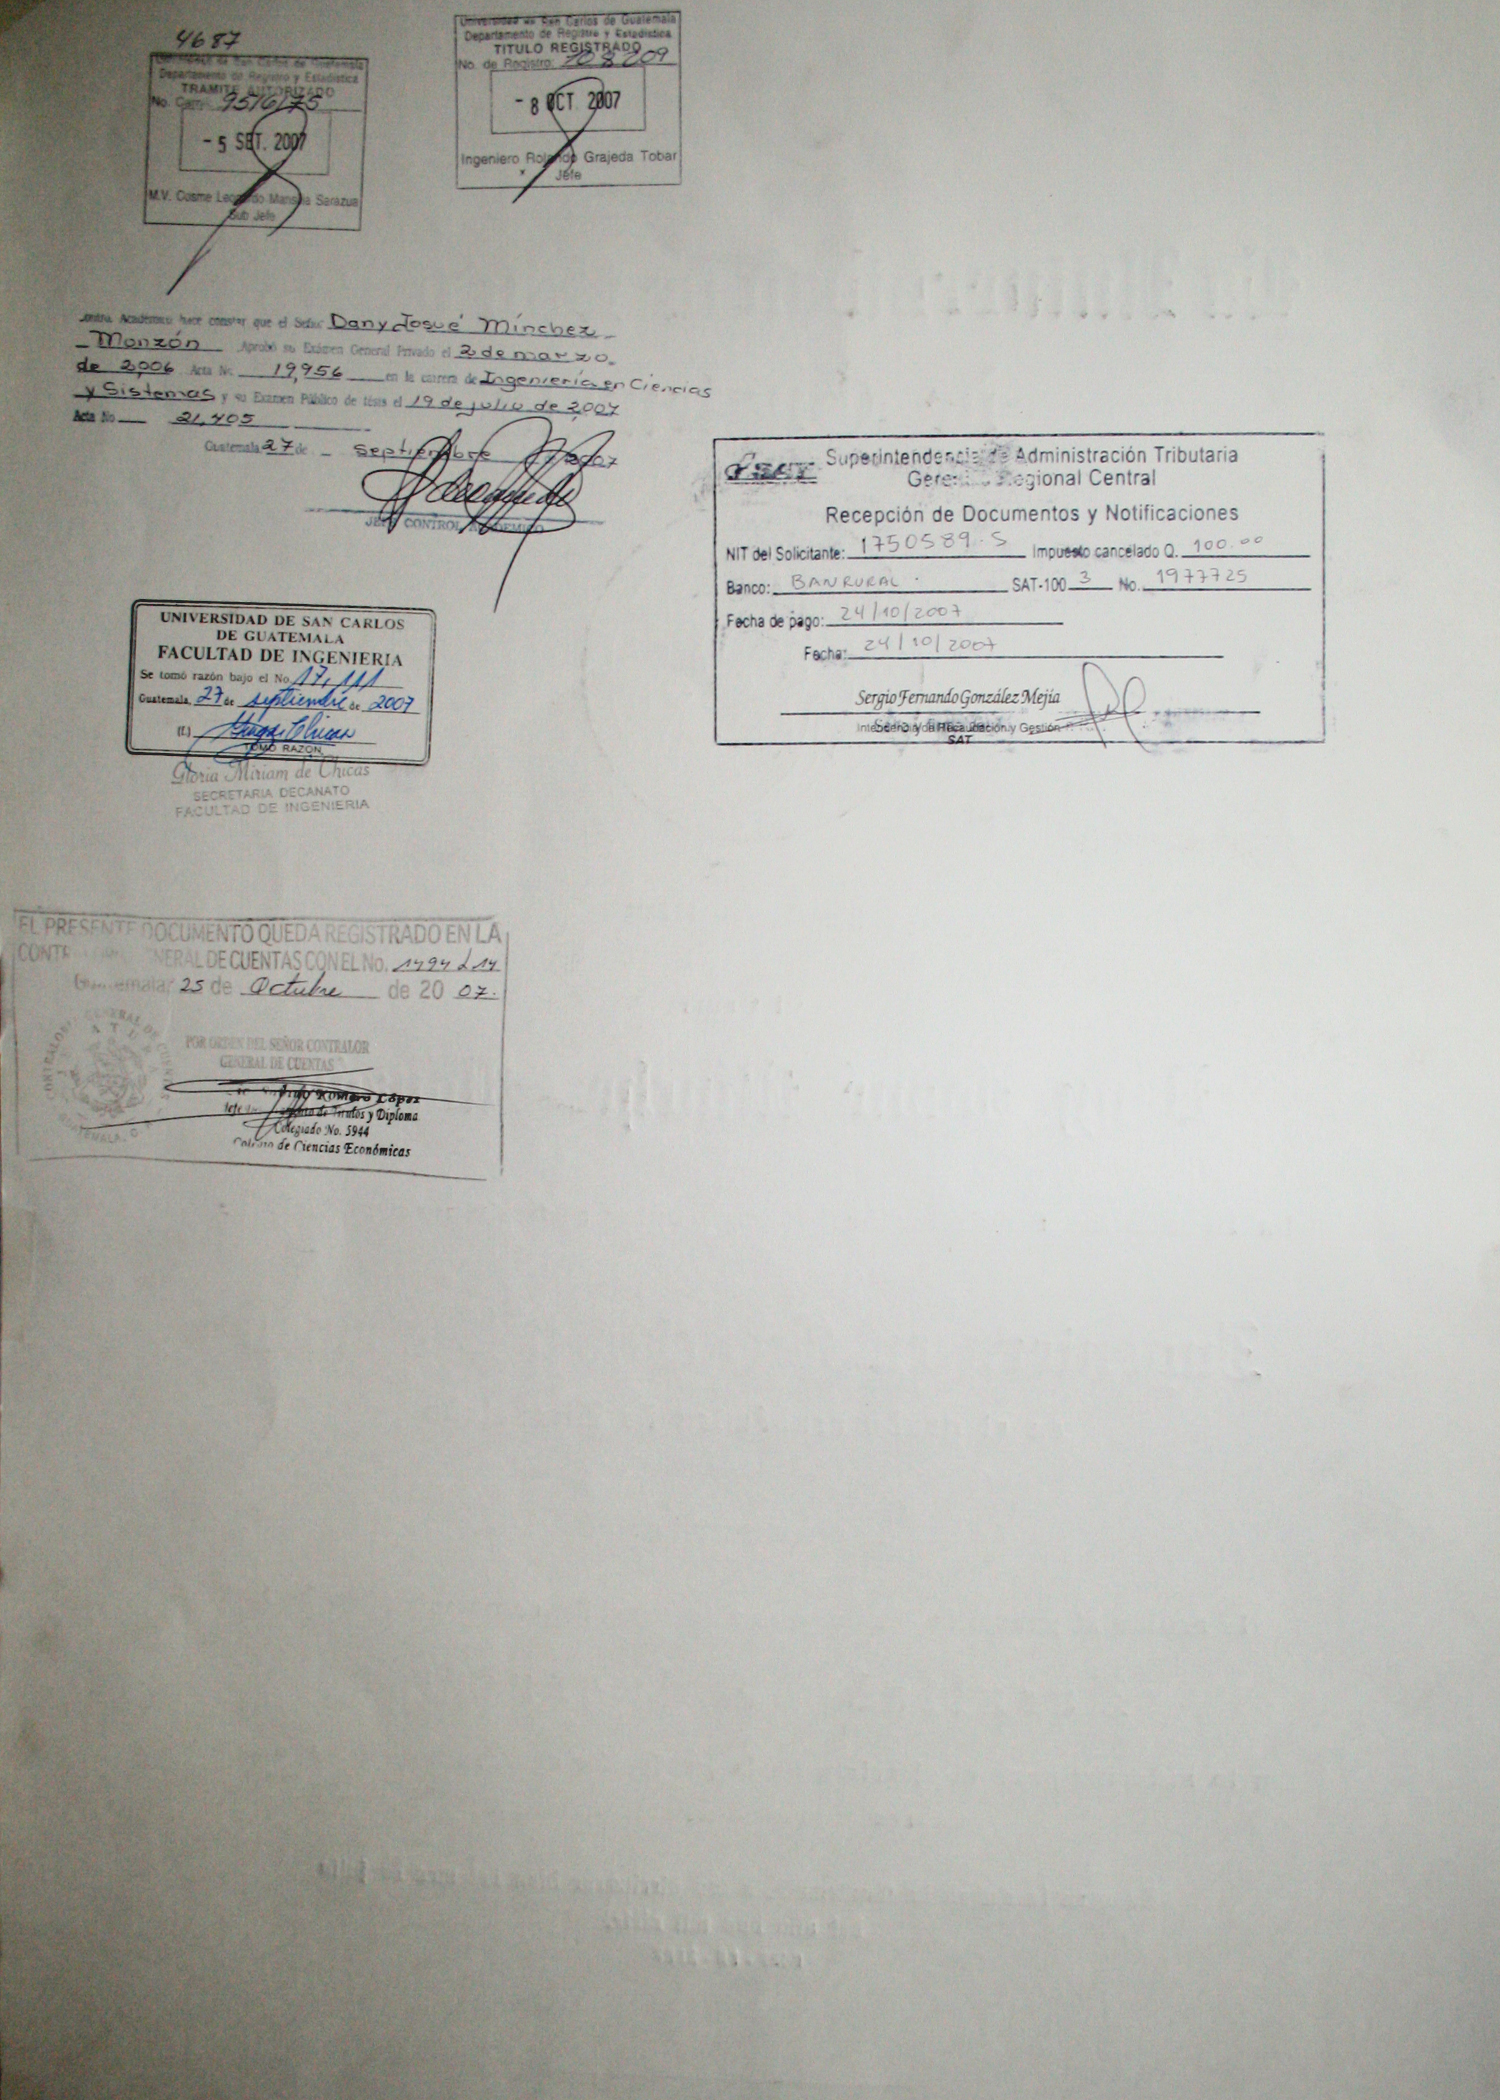 4687
Universidad de San Carlos de Guatemala
Departamento de Registro y Estadística
TRAMITE AUTORIZADO
No. 9516/75
- 5 SET. 2007
M.V. Cosme Leonardo Sarazua
Sub Jefe
Universidad de San Carlos de Guatemala
Departamento de Registro y Estadística
TITULO REGISTRADO
No. de Registro: 108209
- 8 OCT. 2007
Ingeniero Rolando Grajeda Tobar
Jefe
Académico hace constar que el Señor Dany Josué Mínchez
Monzón Aprobó su Exámen General Privado el 2 de marzo
de 2,006 Acta No. 19,956 en la carrera de Ingeniería en Ciencias
y Sistemas y su Examen Público de tesis el 19 de julio de 2,007
Acta No 21,405
Guatemala 27 de septiembre
JEFE CONTROL ACADEMICO
Superintendencia de Administración Tributaria
Gerencia Regional Central
Recepción de Documentos y Notificaciones
NIT del Solicitante: 1750589-5 Impuesto cancelado Q. 100.00
Banco: BANRURAL. SAT-100 3 No. 1977725
Fecha de pago: 24/10/2007
Fecha: 24/10/2007
Sergio Fernando González Mejía
Recaudación y Gestión
SAT
UNIVERSIDAD DE SAN CARLOS
DE GUATEMALA
FACULTAD DE INGENIERIA
Se tomó razón bajo el No 17,111
Guatemala, 27 de septiembre de 2007
(f.)
TOMO RAZON
Gloria Miriam de Chicas
SECRETARIA DECANATO
FACULTAD DE INGENIERIA
EL PRESENTE DOCUMENTO QUEDA REGISTRADO EN LA
GENERAL DE CUENTAS CON EL No.
Guatemala, 25 de Octubre de 20 07.
POR ORDEN DEL SEÑOR CONTRALOR
GENERAL DE CUENTAS
Romero López
de Titulos y Diploma
Colegiado No. 5944
de Ciencias Económicas